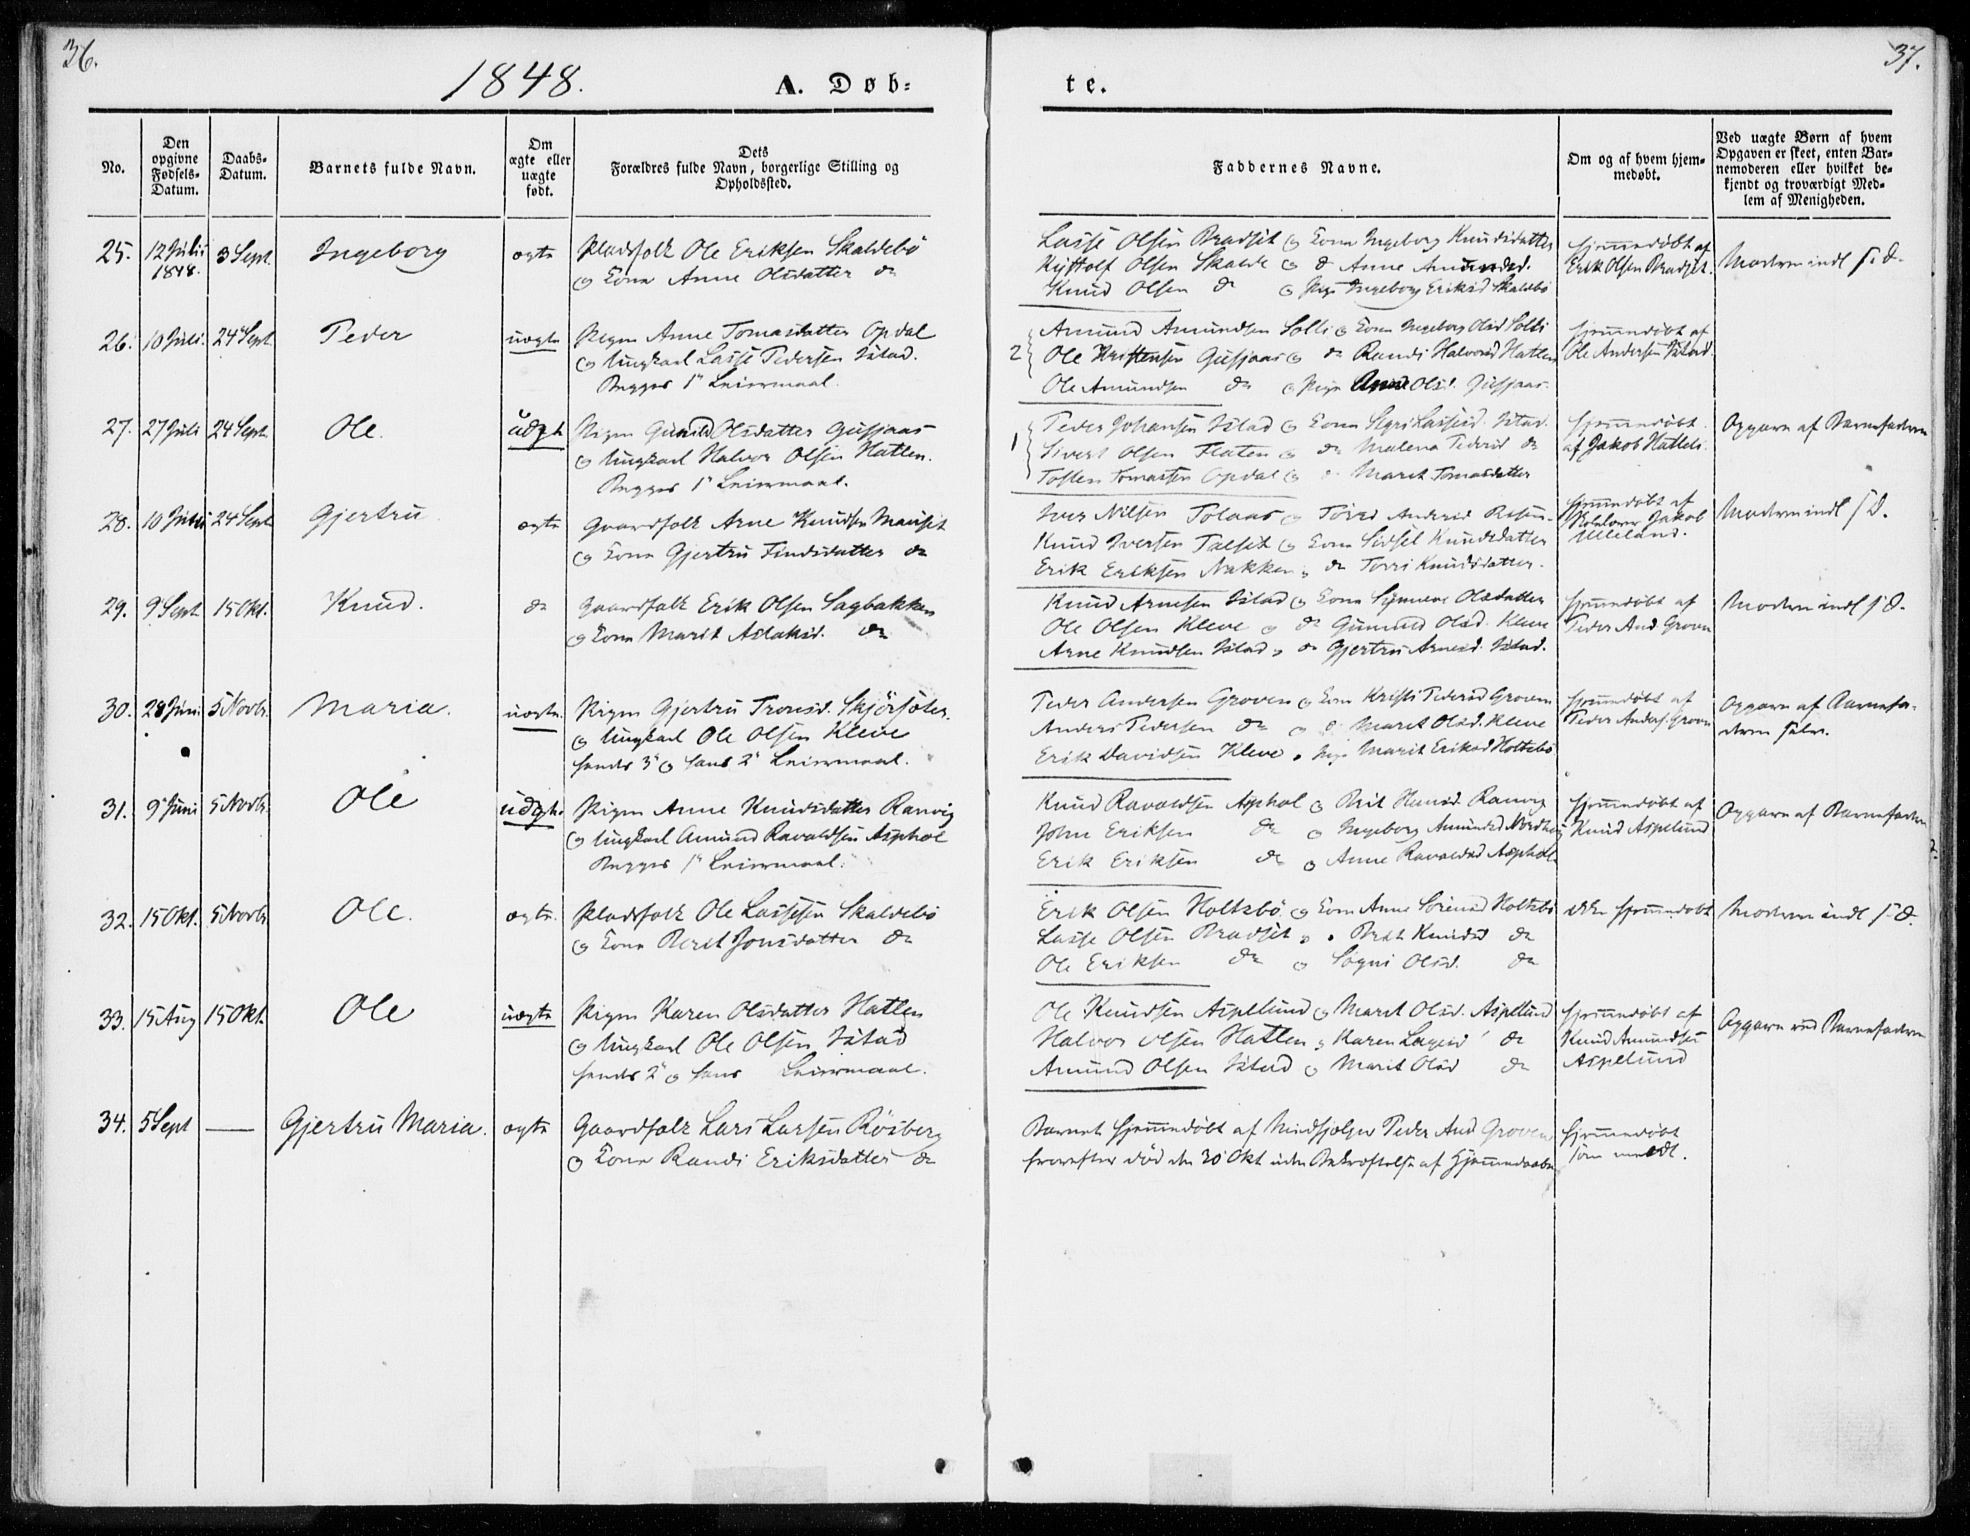 36.
37.
1848.
A. Døb=
te.
No.
Den opgivne Fødsels-Datum.
Daabs-Datum.
Barnets fulde Navn.
Om ægte eller uægte født.
Dets Forældres fulde Navn, borgerlige Stilling og Opholdssted.
Faddernes Navne.
Om og af hvem hjemmedøbt.
Ved uægte Børn af hvem Opgaven er skeet, enten Barnemoderen eller hvilket bekjendt og troværdigt Medlem af Menigheden.
25. 12 Juli 1848. 3 Sept. Ingeborg ægte
Pladsfolk Ole Eriksen Skaldebö
og Kone Anne Olsdatter do
Lasse Olsen Bradsit og Kone Ingeborg Knudsdatter
Olsen Skalde og do Anne
Knud Olsen do og Pige Ingeborg Eriksd Skaldebö
hjemmedøbt af
Erik Olsen Bradsit.
Moderen indl
26. 10 Juli. 24 Sept. Peder uægte
Pigen Anne Tomasdatter Opdal
og Ungkarl Lasse Pedersen Istad.
Begges 1ste Leiermaal.
2
Amund Amundsen Solli og Kone Ingeborg Olsd Solli
Ole Kristensen Gusjaas og do Randi Halvorsd Hatlen
Ole Amundsen do og Pige Olsd. Gusjaas.
hjemmedøbt af
Ole Andersen Istad.
27. 27 Juli 24 Sept. Ole. uægte
Pigen Gunild Olsdatter Gusjaas
og Ungkarl Halvor Olsen Hatlen.
Begges 1ste Leiermaal.
1
Peder Johansen Istad og Kone Istad.
Sivert Olsen Flaten og do Malena Pedersd do
Tosten Tomassen Opdal og Marit Tomasdatter
hjemmedøbt
af Jakob Hatlen.
Opgave af Barnefaderen
28. 10 24 Sept. Gjertru ægte
Gaardfolk Arne Knudsen Mauset
og Kone Gjertru Findsdatter do
Iver Nilsen Tolaas og Andersd
Knud Iversen Talset og Kone Sidsel Knudsdatter
Erik Eriksen Nakken og do Knudsdatter.
hjemmedøbt af
Skolelærer Jakob
Ulleland.
Moderen indl
29. 9 Sept. 15 Okt. Knud. do
Gaardfolk Erik Olsen Sagbakken
og Kone Marit Aslaksd. do
Knud Arnesen Istad og Kone Synneve Olsdatter
Ole Olsen Kleve og do Gunild Olsd. Kleve
Arne Knudsen Istad og do Gjertru Arnesd. Istad.
hjemmedøbt af
Peder And. Groven
Moderen indl
30. 28 Juni 5 Novbr. Maria. uægte.
Pigen Gjertru Tronsd. Skjörsæter.
og Ungkarl Ole Olsen Kleve
hendes 3die og hans 2det Leiermaal.
Peder Andersen Groven og Kone Kristi Pedersd Groven
Anders Pedersen do og Marit Olsd. Kleve
Erik Davidsen Kleve og Pige Marit Eriksd Holtebö
hjemmedøbt af
Peder Anders. Groven
Opgave af Barnefaderen
selv.
31. 9 Juni 5 Novbr. Ole uægte.
Pigen Anne Knudsdatter Ranvig
og Ungkarl Amund Ravaldsen Asphol
Begges 1ste Leiermaal.
Knud Ravaldsen Asphol og Brit Hansd. Ranvig
John Eriksen do og Ingeborg Amundsd
Erik Eriksen do og Anne Ravaldsd Asphol
hjemmedøbt af
Knud Aspelund
Opgave af Barnefaderen
32. 15 Okt. 5 Novbr. Ole. ægte.
Pladsfolk Ole Lassesen Skaldebö
og Kone Beret Jonsdatter do
Erik Olsen Holtebö og Kone Anne Sörensd Holtebö
Lasse Olsen Bradsit og Brit Knudsd do
Ole Eriksen do og Sögni Olsd. do
ikke hjemmedøbt
Moderen indl
33. 15 Aug 15 Okt. Ole uægte
Pigen Karen Olsdatter Hatlen
og Ungkarl Ole Olsen Istad
hendes 2det og hans Leiermaal.
Ole Knudsen Aspelund og Marit Olsd. Aspelund
Halvor Olsen Hatlen og Karen do
Amund Olsen Istad og Marit Olsd do
hjemmedøbt af
Knud Amundsen
Aspelund
Opgave ved Barnefaderen
34. 5 Sept — Gjertru Maria. ægte
Gaardfolk Lars Larsen Rösberg
og Kone Randi Eriksdatter do
Barnet hjemmedøbt af Medhjælper Peder And Groven,
herefter död den 30 Okt uden Bekræftelse af Hjemmedaaben
hjemmedöbt
som meldt.